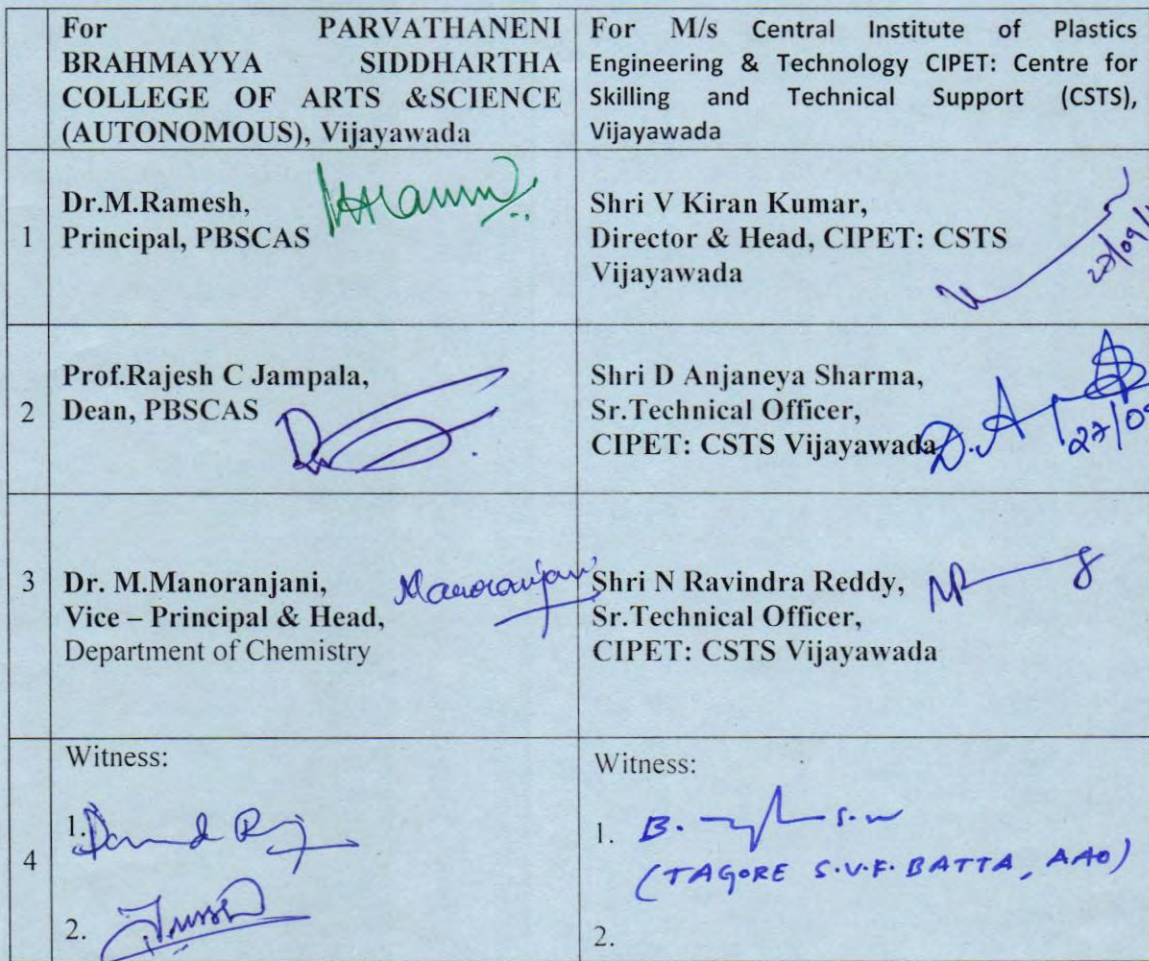 For PARVATHANENI
BRAHMAYYA SIDDHARTHA
COLLEGE OF ARTS &SCIENCE
(AUTONOMOUS), Vijayawada
For M/s Central Institute of Plastics
Engineering & Technology CIPET: Centre for
Skilling and Technical Support (CSTS),
Vijayawada
1
Dr.M.Ramesh,
Principal, PBSCAS
Shri V Kiran Kumar,
Director & Head, CIPET: CSTS
Vijayawada
27/09/
2
Prof.Rajesh C Jampala,
Dean, PBSCAS
Shri D Anjaneya Sharma,
Sr.Technical Officer,
CIPET: CSTS Vijayawada
D.A
27/09
3
Dr. M.Manoranjani,
Vice – Principal & Head,
Department of Chemistry
Manoranjani
Shri N Ravindra Reddy,
Sr.Technical Officer,
CIPET: CSTS Vijayawada
4
Witness:
1.
2.
Witness:
1. B.
(TAGORE S.V.F. BATTA, AAO)
2.